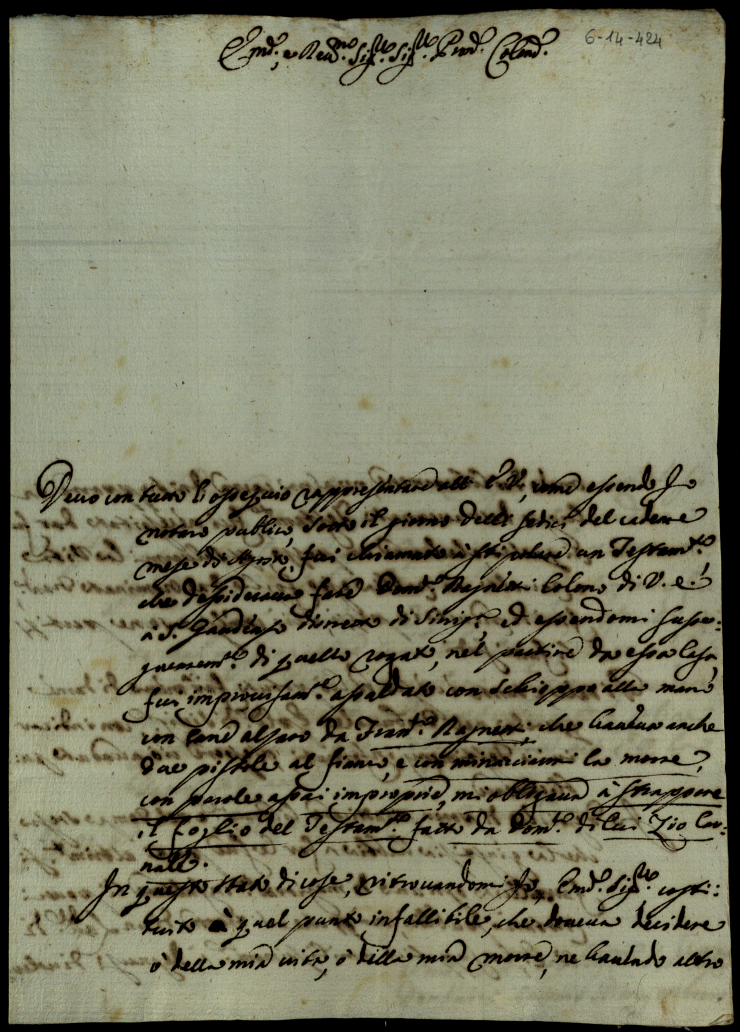 6-14-424
Em.ᵒ, e Rev.ᵐᵒ Sig.ʳᵉ Sig.ʳᵉ Pron. Colend.ᵒ
Devo con tutto l'ossequio rappresentare all' E. V., come essendo Io
notaro publico, sotto il giorno delli sedici del cadente
mese di Agosto, fui chiamato à stipolare un Testam.ᵒ
che dessiderava fare Dom.ᶜᵒ Ragnetti Colono di V. E.
a S. Gaudenzo di Sinig.ᵃ, ed essendomi
di quello rogato, nel partire da essa Casa
fui improvisam.ᵉ assaltato con Schioppo alla mano
con cane alzato da Fran.ᶜᵒ Ragnetti, che haveva anche
due pistole al fianco, e con minacciarmi la morte,
con parole assai improprie, mi obligava à strappare
il foglio del Testam.ᵒ fatto da Dom.ᶜᵒ di lui Zio Car-
nale.
In questo stato di cose, ritrovandomi Io, Em.ᵒ Sig.ʳᵉ costi-
tuito à quel punto infallibile, che doveva decidere
ò della mia vita, ò della mia morte, ne havendo altro